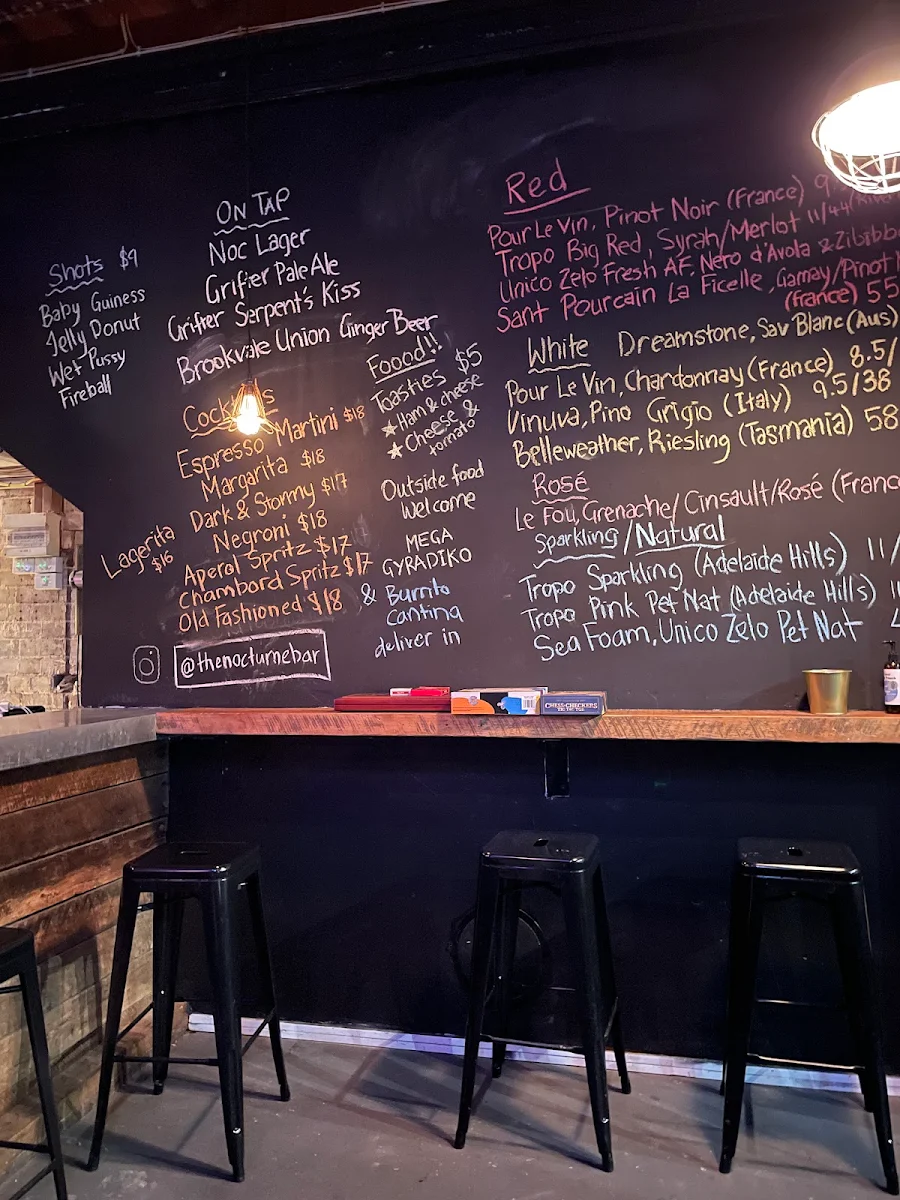 Shots $9
Baby Guiness
Jelly Donut
Wet Pussy
Fireball
ON TAP
Noc Lager
Grifter Pale Ale
Grifter Serpent's Kiss
Brookvale Union Ginger Beer
Cocktails
Espresso Martini $18
Margarita $18
Dark & Stormy $17
Negroni $18
Aperol Spritz $17
Chambord Spritz $17
Old Fashioned $18
Lagerita
$16
@thenocturnebar
Foood!!
Toasties $5
Ham & cheese
Cheese &
tomato
Outside food
Welcome
MEGA
GYRADIKO
& Burrito
Cantina
deliver in
Red
Pour Le Vin, Pinot Noir (France)
Tropo Big Red, Syrah/Merlot 11/44
Unico Zelo Fresh AF, Nero d'Avola & Zibibb
Sant Pourcain La Ficelle, Gamay/Pinot
(France) 55
White
Dreamstone, Sav Blanc (Aus)
Pour Le Vin, Chardonnay (France) 8.5/
Vinuva, Pino Grigio (Italy) 9.5/38
Belleweather, Riesling (Tasmania) 58
Rosé
Le Fou, Grenache/Cinsault/Rosé (Franc
Sparkling/Natural
Tropo Sparkling (Adelaide Hills) 11/
Tropo Pink Pet Nat (Adelaide Hills)
Sea Foam, Unico Zelo Pet Nat
CHESS-CHECKERS
TIC TAC TOE